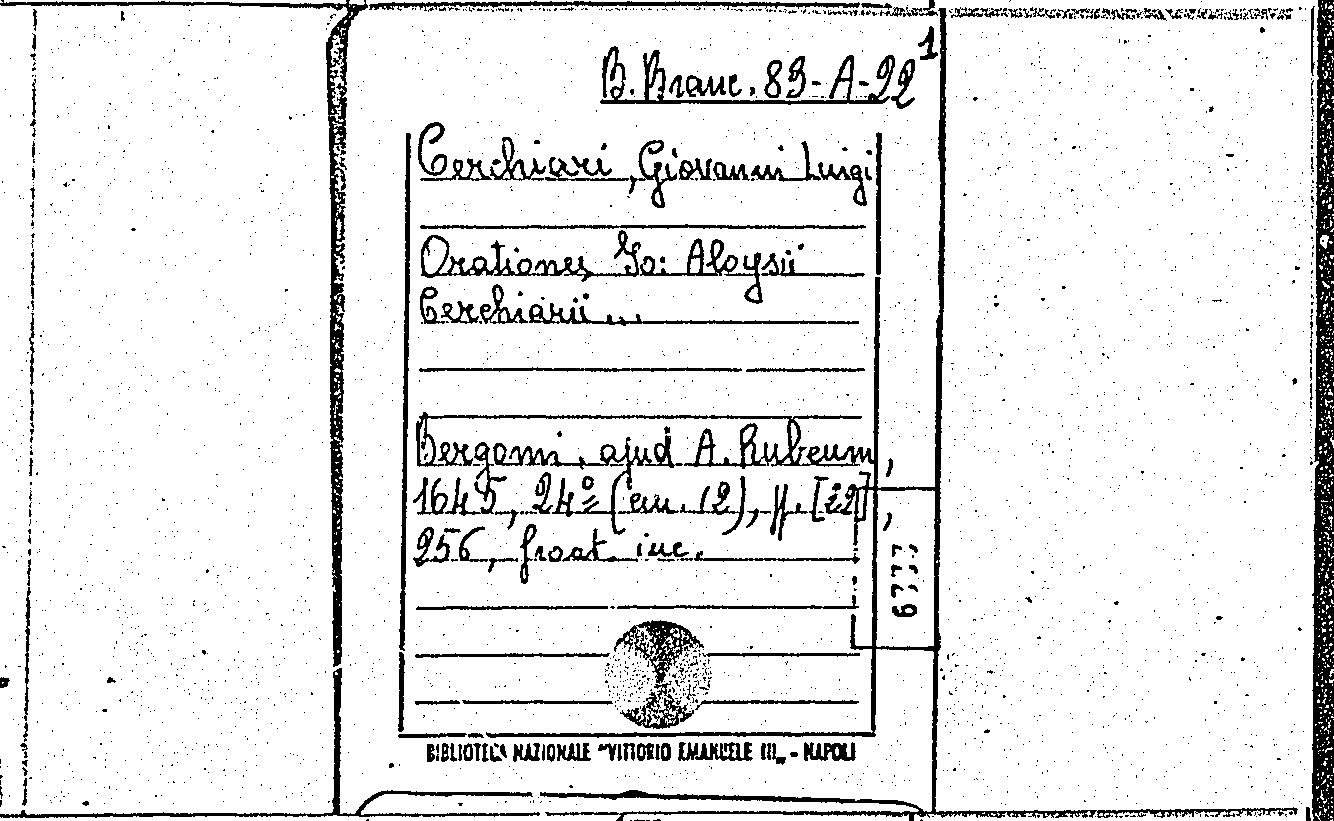 B. Branc. 83-A-22¹
Cerchiari, Giovanni Luigi
Orationes Io: Aloysii
Cerchiarii ...
Bergomi, apud A. Rubeum,
1645, 24º (cm. 12), p. [22],
256, front. inc.
6777
BIBLIOTECA NAZIONALE "VITTORIO EMANUELE III„ - NAPOLI